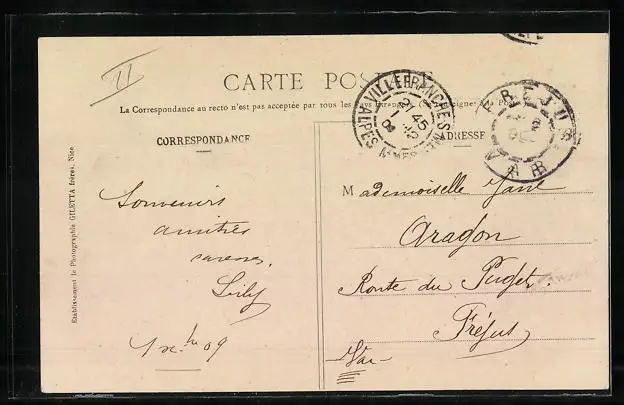 11
CARTE POS
La Correspondance au recto n'est pas acceptée par tous les pays étrangers (Se renseigner à la Poste
CORRESPONDANCE
ADRESSE
VILLEFRANCHE S MER
ALPES Mmes
45
FREJUS
VAR
Souvenirs
amitiés
Lily
09
Mademoiselle Jane
Aragon
Route du Puget
Fréjus
Var
Etablissement le Photographie GILETTA frères, Nice